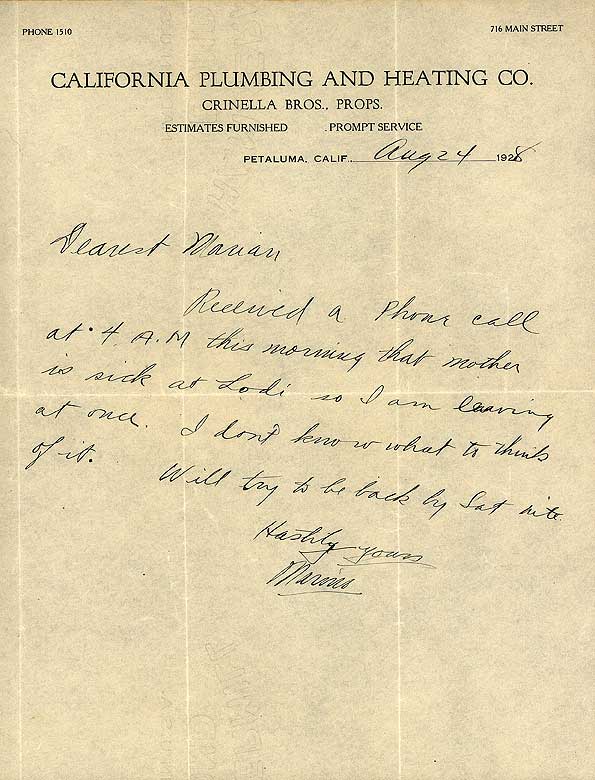 PHONE 1510
716 MAIN STREET
CALIFORNIA PLUMBING AND HEATING CO.
CRINELLA BROS., PROPS.
ESTIMATES FURNISHED . PROMPT SERVICE
PETALUMA, CALIF., Aug 24 1928
Dearest Marian
Received a Phone call
at 4 A.M this morning that mother
is sick at Lodi so I am leaving
at once. I don't know what to think
of it. Will try to be back by Sat nite.
Hastily yours